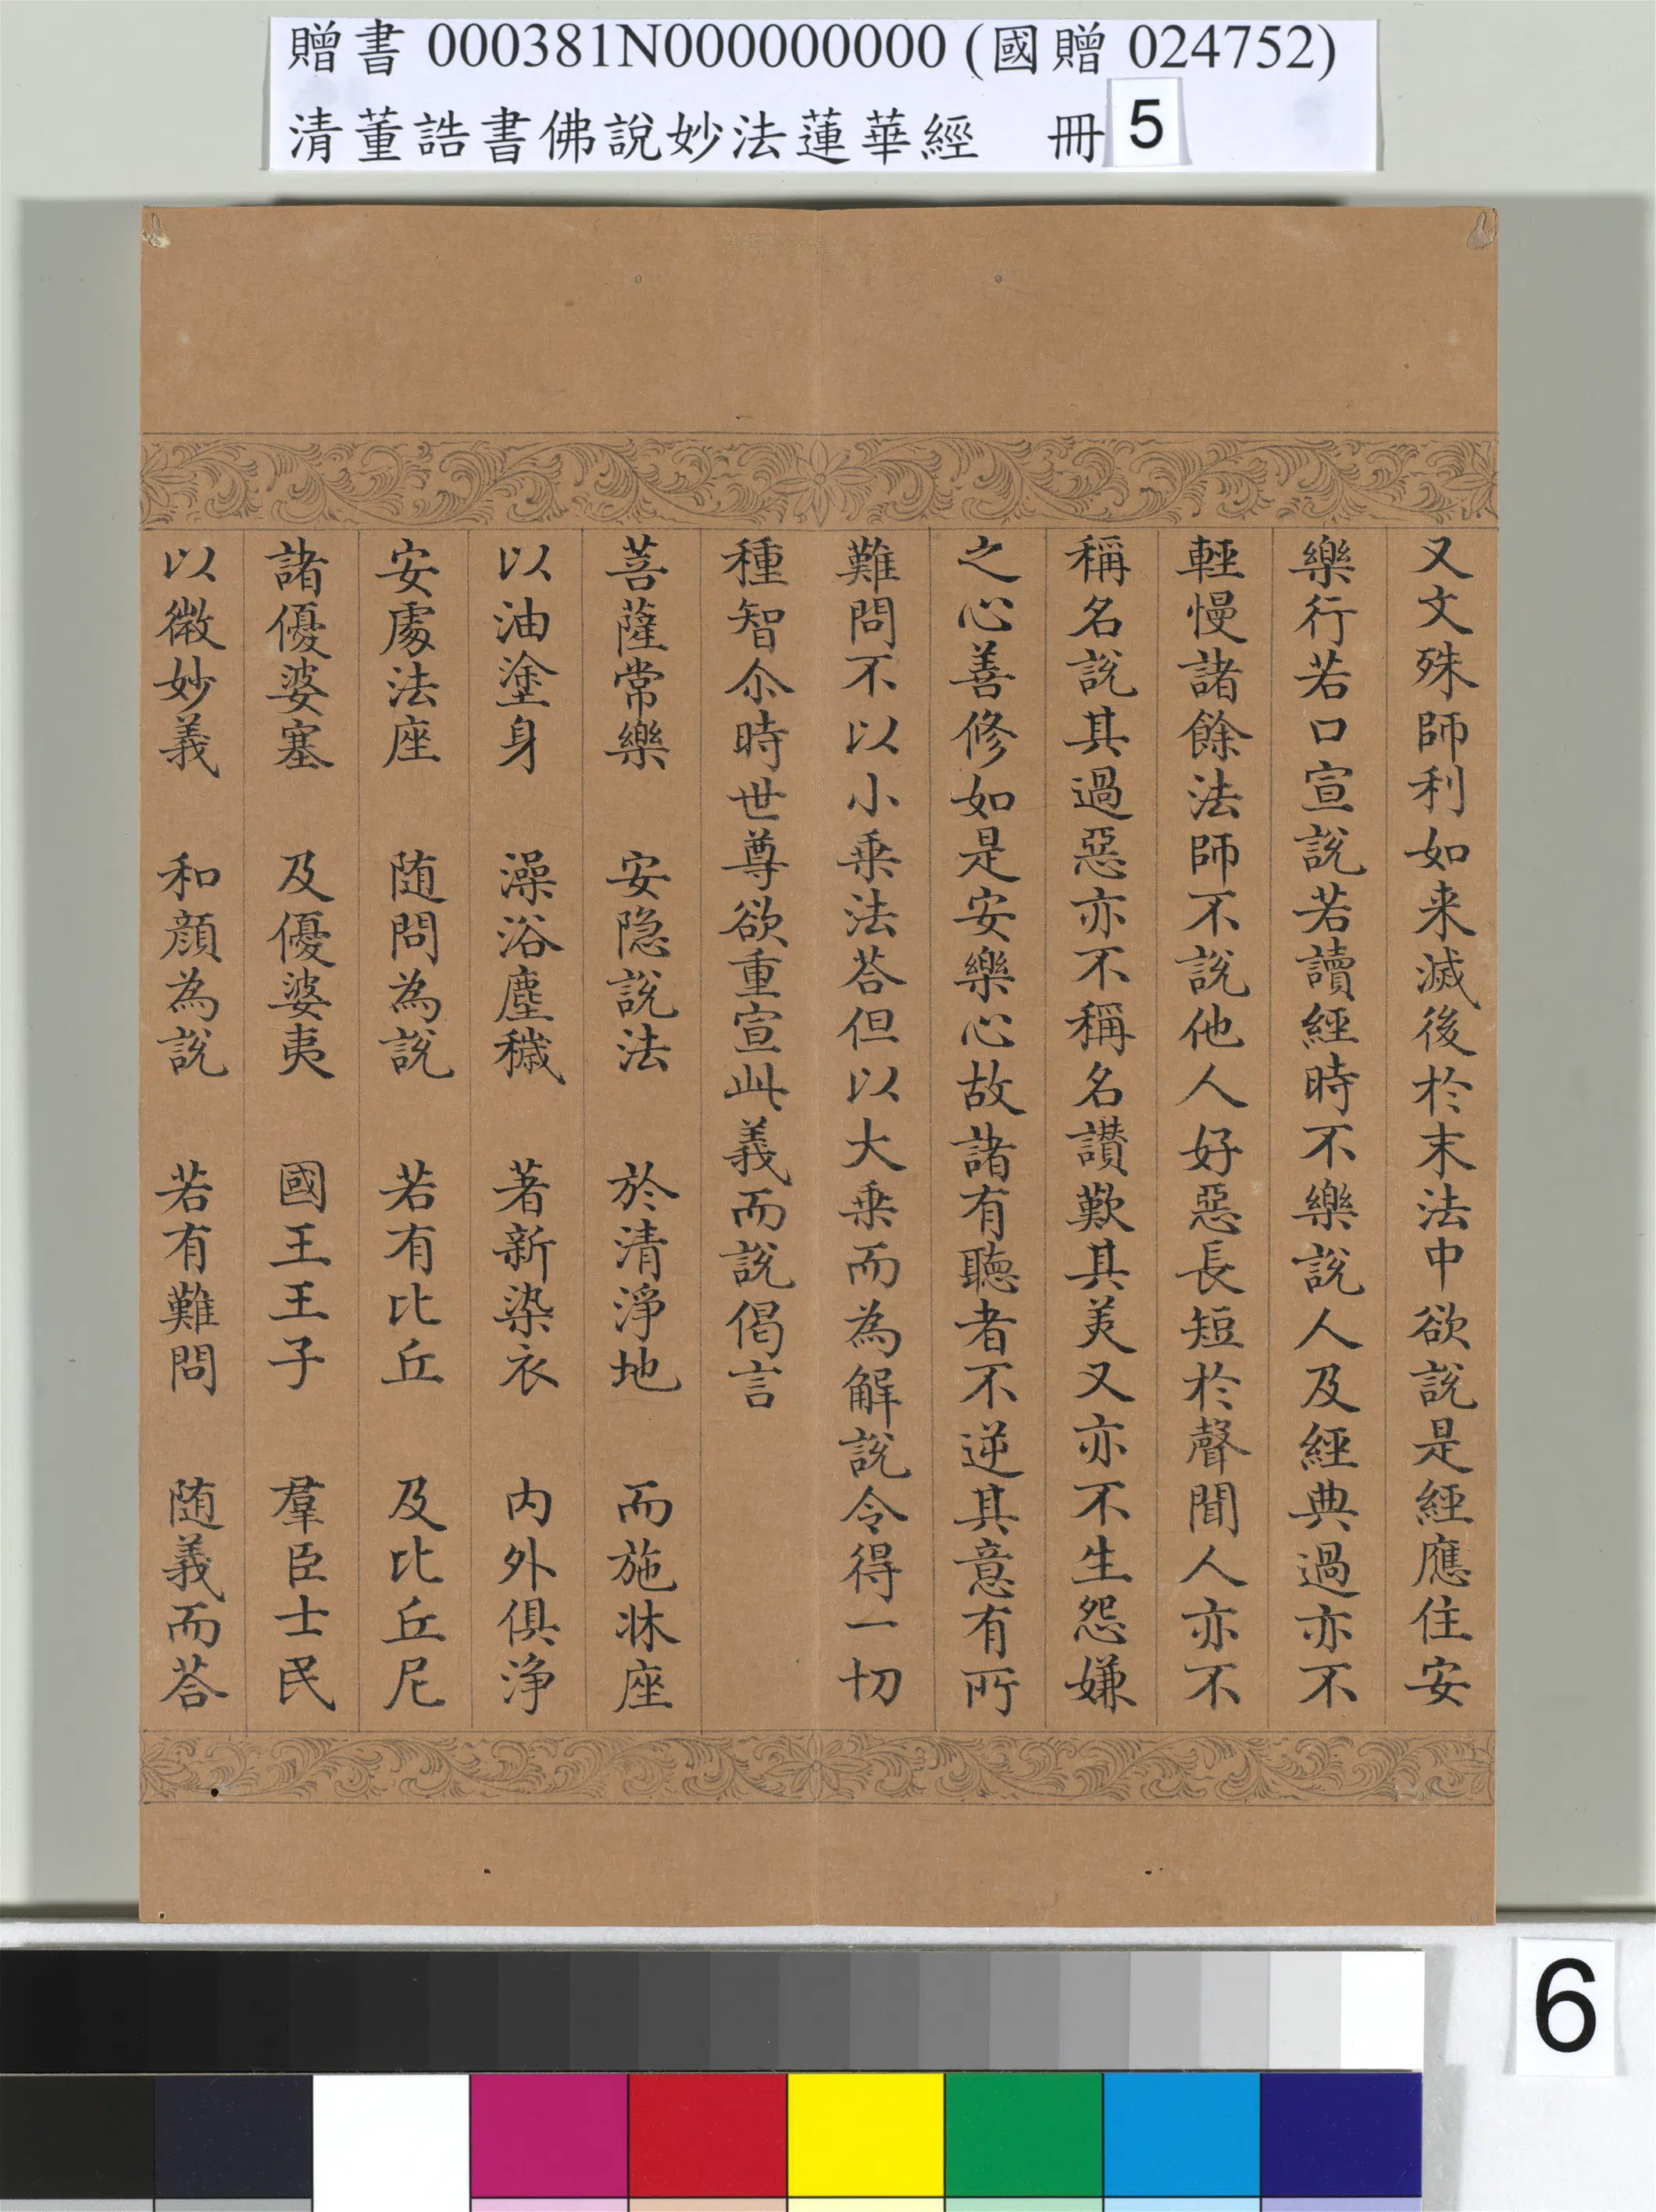 贈書 000381N000000000 (國贈 024752)
清董誥書佛說妙法蓮華經 冊 5
又文殊師利如来滅後於末法中欲說是經應住安
樂行若口宣說若讀經時不樂說人及經典過亦不
輕慢諸餘法師不說他人好惡長短於聲聞人亦不
稱名說其過惡亦不稱名讚歎其美又亦不生怨嫌
之心善修如是安樂心故諸有聽者不逆其意有所
難問不以小乗法荅但以大乗而為解說令得一切
種智尒時世尊欲重宣此義而說偈言
菩薩常樂 安隐說法 於清淨地 而施牀座
以油塗身 澡浴塵穢 著新染衣 内外俱淨
安處法座 随問為說 若有比丘 及比丘尼
諸優婆塞 及優婆夷 國王王子 羣臣士民
以微妙義 和顔為說 若有難問 随義而荅
6